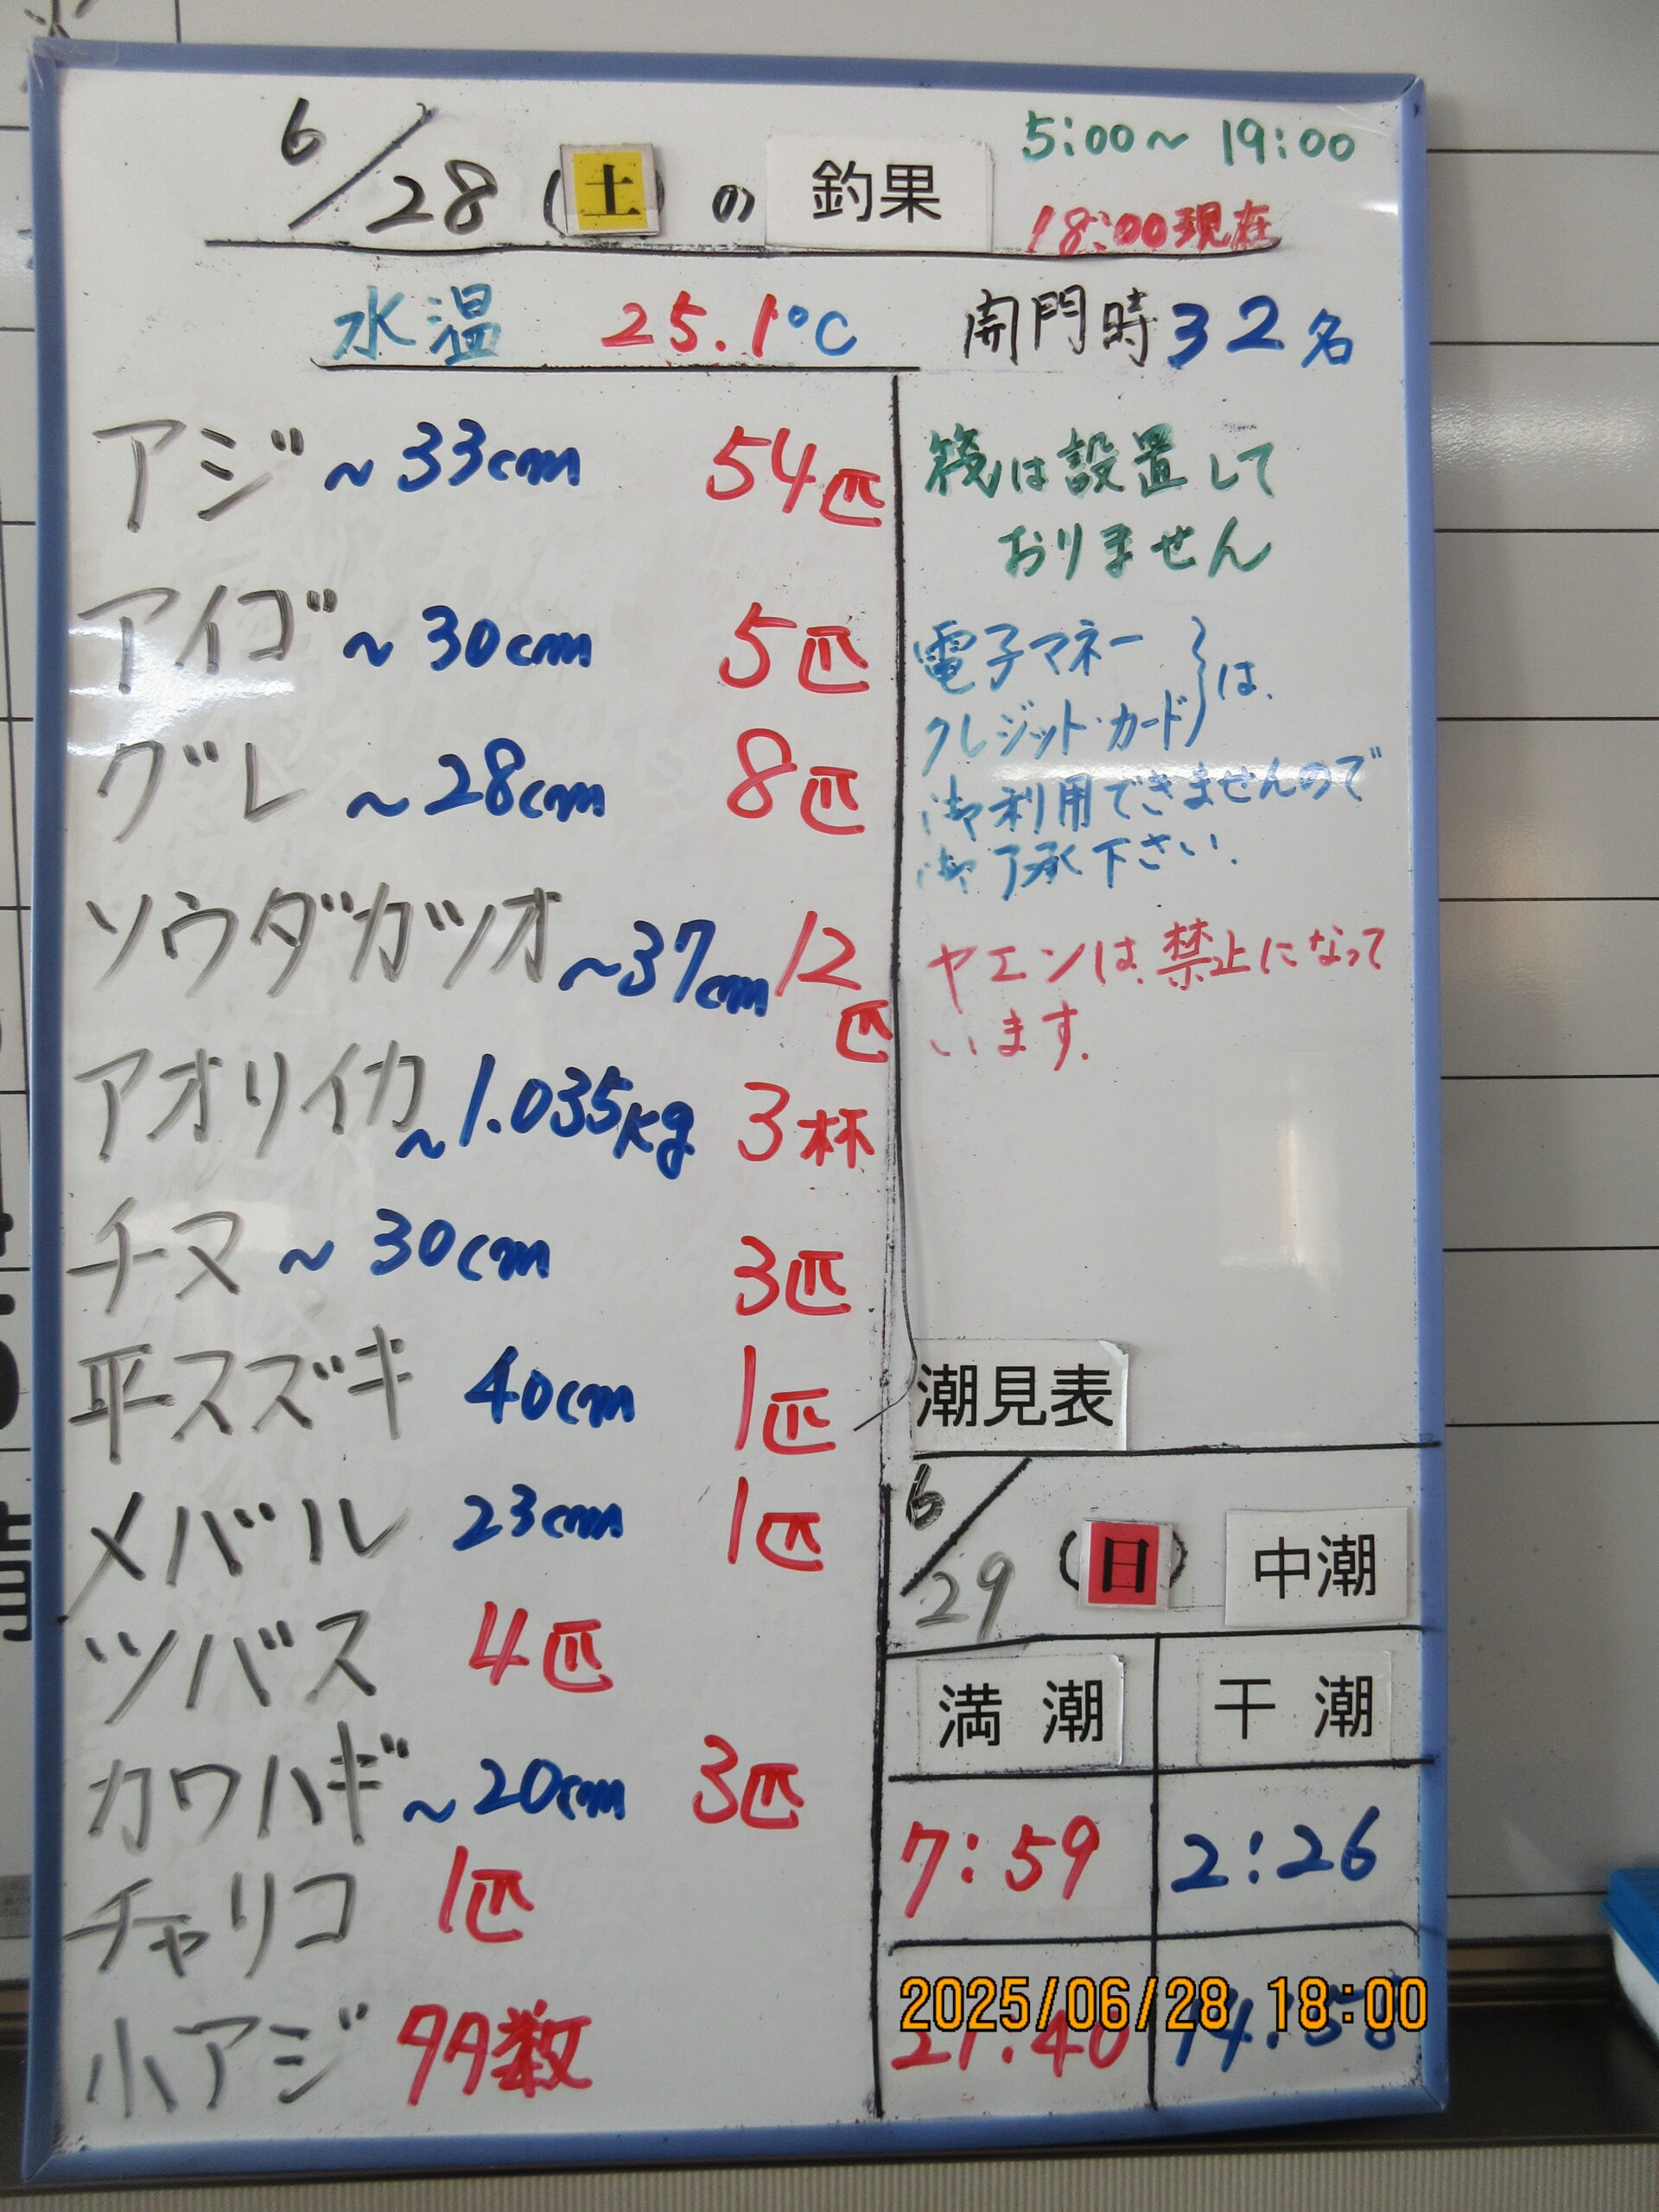 6/28(土)の釣果
5:00~19:00
18:00現在
水温 25.1℃
開門時32名
アジ ~33cm 54匹
アイゴ ~30cm 5匹
グレ ~28cm 8匹
ソウダガツオ ~37cm 12匹
アオリイカ ~1.035kg 3杯
チヌ ~30cm 3匹
平スズキ 40cm 1匹
メバル 23cm 1匹
ツバス 4匹
カワハギ ~20cm 3匹
チャリコ 1匹
小アジ 多数
筏は設置して
おりません
電子マネー
クレジット・カード}は、
御利用できませんので
御了承下さい.
ヤエンは、禁止になって
います.
潮見表
6/29(日) 中潮
満潮 干潮
7:59 2:26
21:40
2025/06/28 18:00